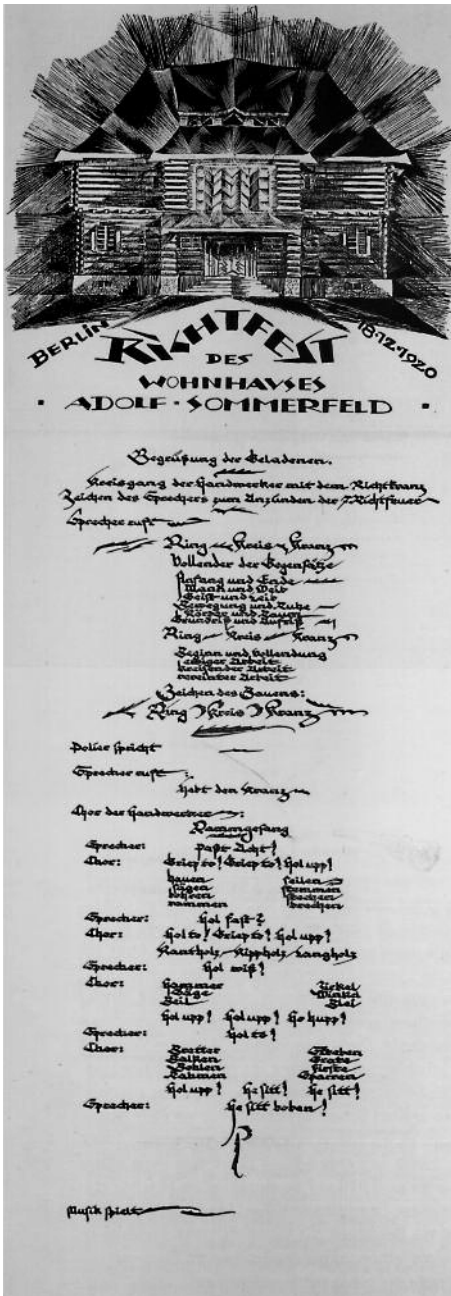 BERLIN RICHTFEST 18·12·1920
DES
WOHNHAVSES
· ADOLF · SOMMERFELD ·
Begrüßung der Geladenen.
Kreisgang der Handwerker mit dem Richtkranz
Zeichen des Sprechers zum Anzünden der 7 Richtfeuer
Sprecher ruft
Ring Kreis Kranz
Vollender der Gegensätze
Anfang und Ende
Mann und Weib
Geist und Leib
Bewegung und Ruhe
Körper und Raum
Grundriß und Aufriß
Ring Kreis Kranz
Beginn und Vollendung
kreisender Arbeit
vereinter Arbeit
Zeichen des Bauens:
Ring Kreis Kranz
Polier spricht
Sprecher ruft:
Hebt den Kranz
Chor der Handwerker:
Rammgesang
Sprecher: Paßt Acht!
Chor: Griep to! Griep to! Hol upp!
hauen feilen
sägen stemmen
bohren stechen
rammen brechen
Sprecher: Hol fast?
Chor: Hol to! Griep to! Hol upp!
Kantholz Kippholz Langholz
Sprecher: Hol wiß!
Chor: Hammer Zirkel
Säge Winkel
Beil Blei
Hol upp! Hol upp! He hupp!
Sprecher: Hol to!
Chor: Bretter Streben
Balken Grate
Bohlen Firste
Rahmen Sparren
Hol upp! He sitt! He sitt!
Sprecher: He sitt boben!
Musik spielt